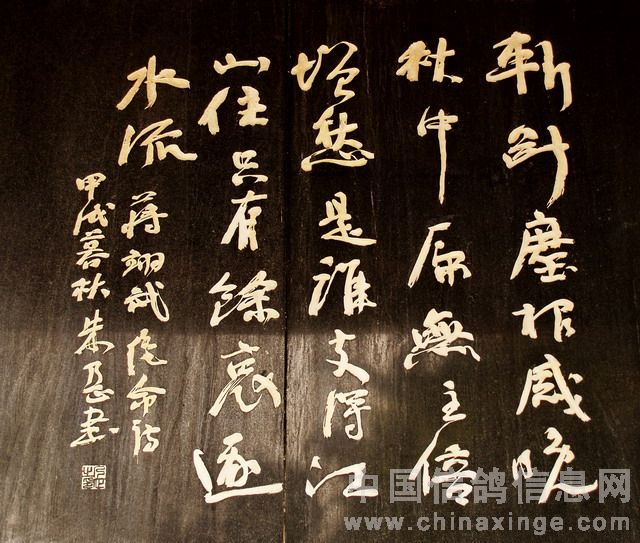 斬斷塵根感晚
秋中原無主倍
增愁是誰支得江
山住只有餘哀逐
水流 蔣翊武絕命詩
甲戌暮秋朱乃正書
中国信鸽信息网
www.chinaxinge.com